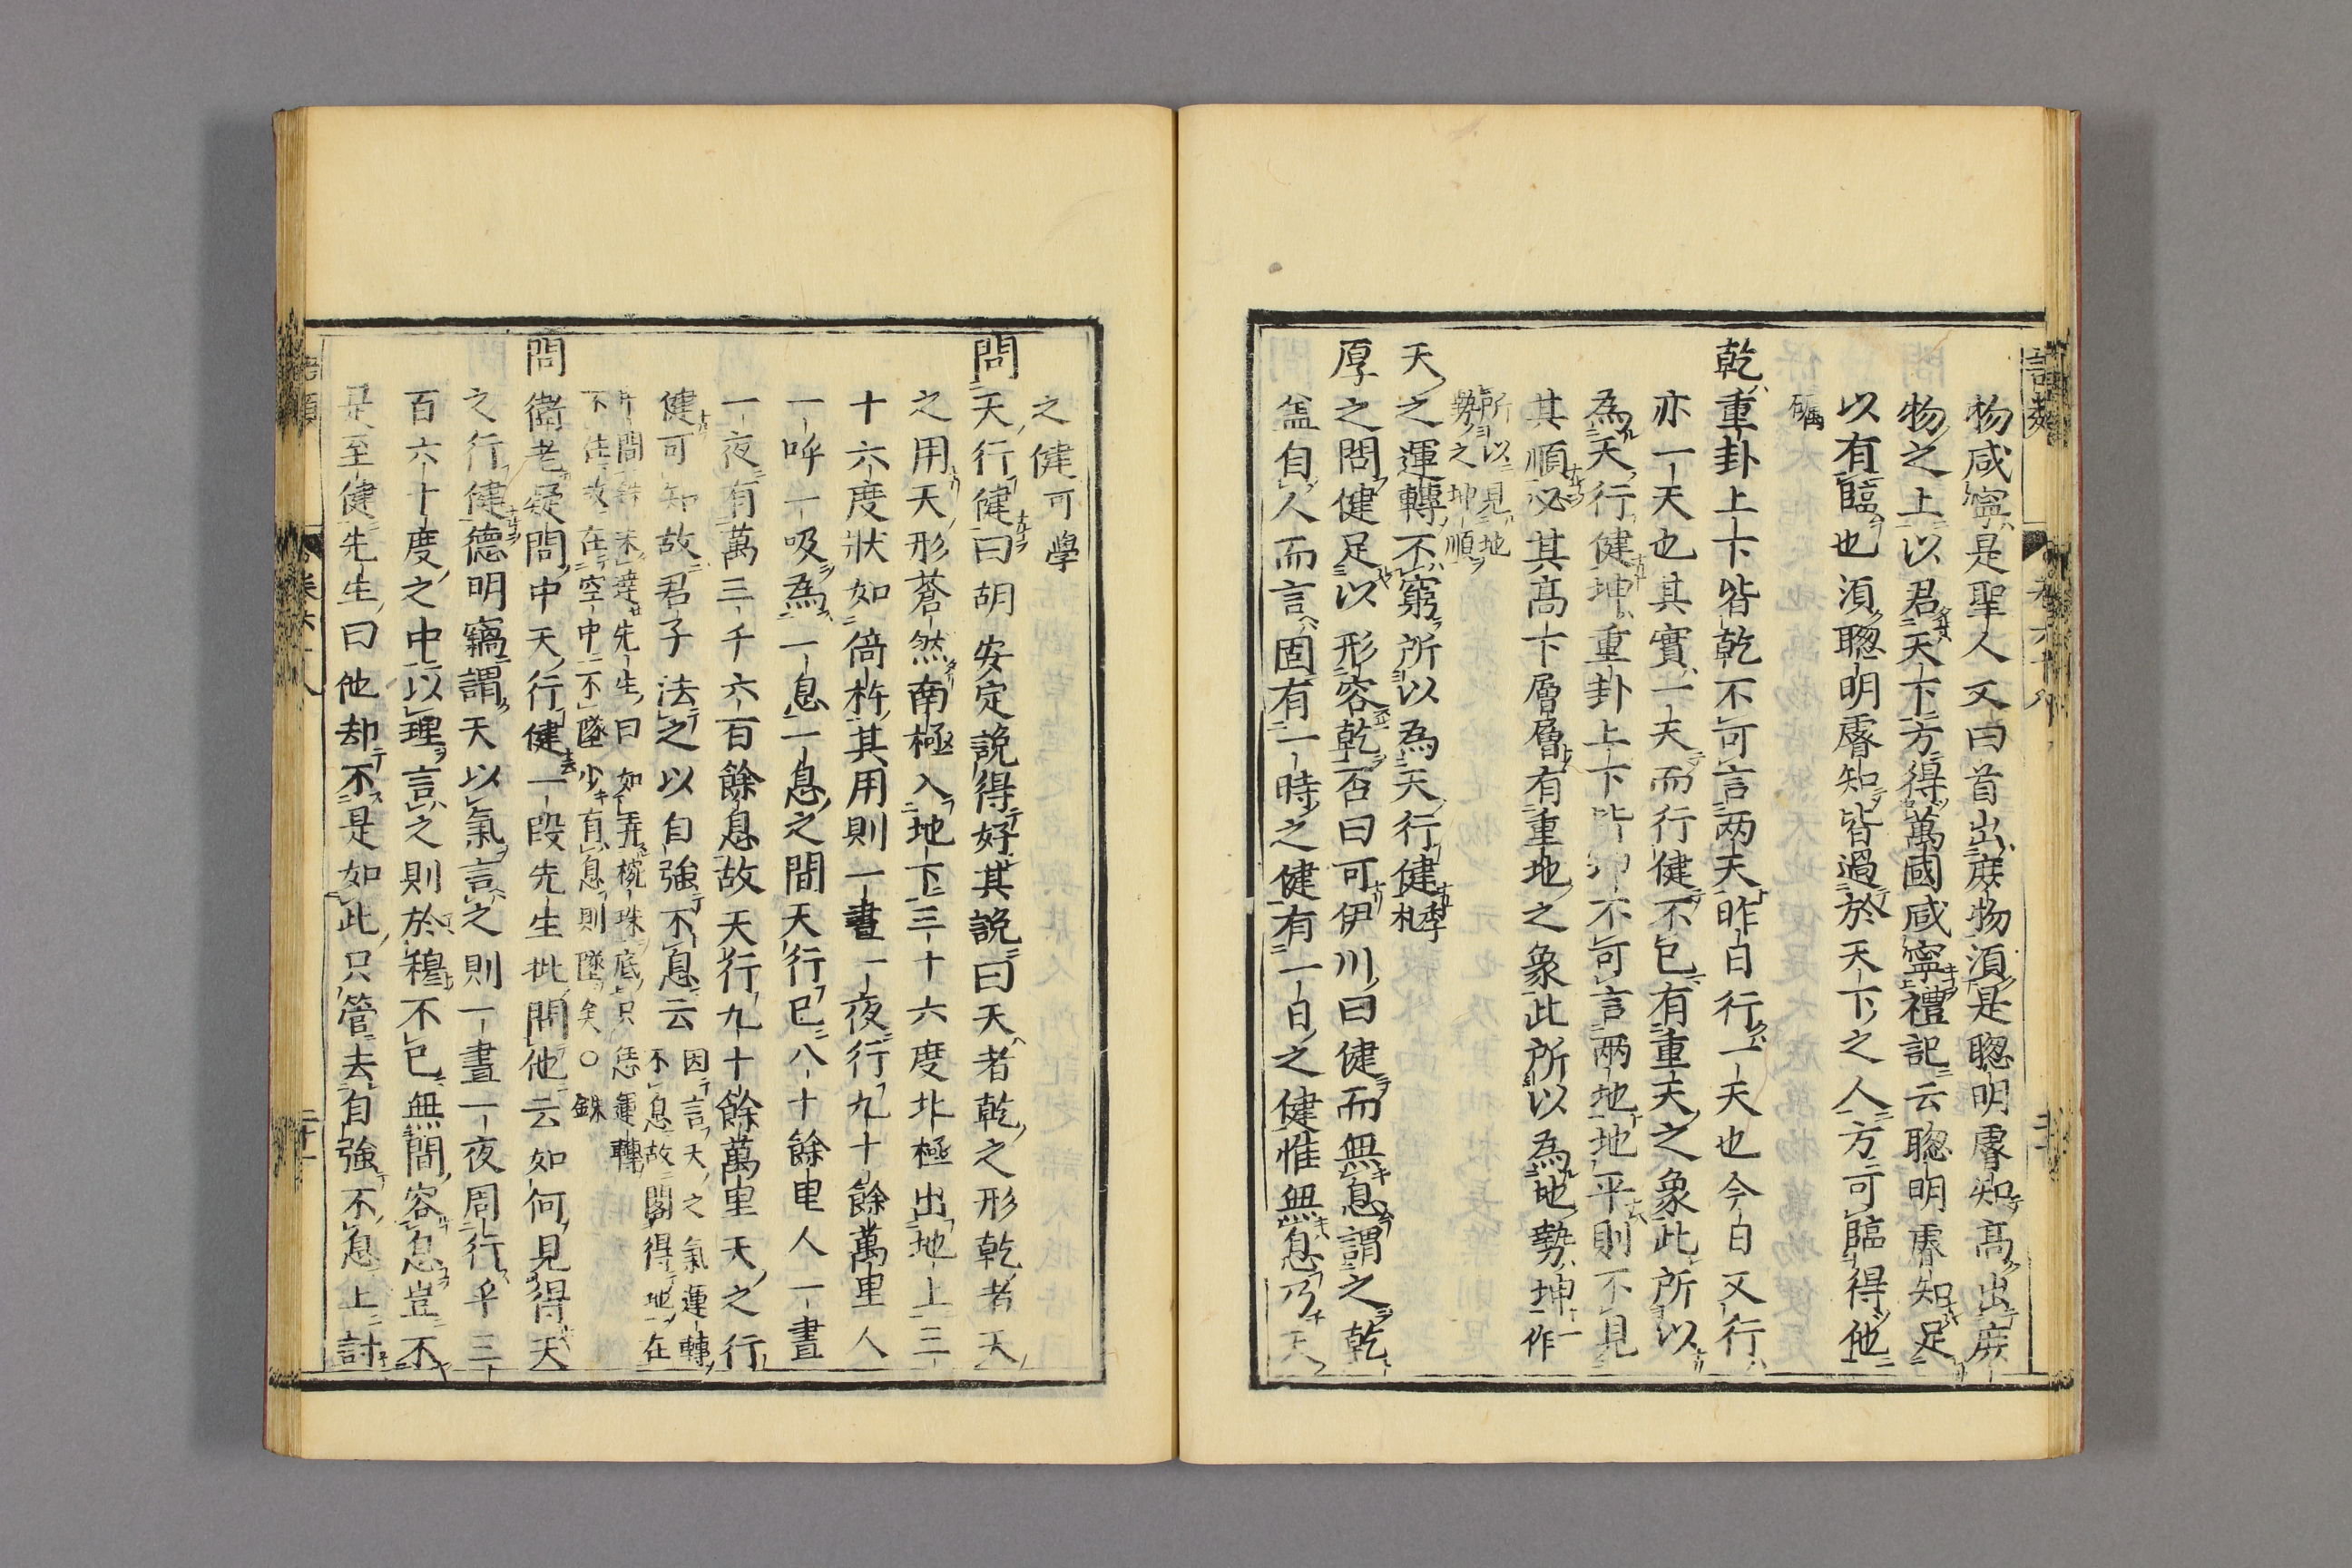 物咸寧是聖人又曰首出庶物須是聰明睿知高出庶
物之上以君天下方得萬國咸寧禮記云聰明睿知足
以有臨也須聰明睿知皆過於天下之人方可臨得他
礪
乾重卦上下皆乾不可言兩天昨日行一天也今日又行
亦一天也其實一天而行健不已有重天之象此所以
為天行健坤重卦上下皆坤不可言兩地地平則不見
其順必其高下層層有重地之象此所以為地勢坤作一
所以見地
勢之坤順
天之運轉不窮所以為天行健季札
厚之問健足以形容乾否曰可伊川曰健而無息謂之乾
盖自人而言固有一時之健有一日之健惟無息乃天
之健可學
問天行健曰胡安定說得好其說曰天者乾之形乾者天
之用天形蒼然南極入地下三十六度北極出地上三
十六度狀如倚杵其用則一晝一夜行九十餘萬里人
一呼一吸為一息一息之間天行已八十餘里人一晝
一夜有萬三千六百餘息故天行九十餘萬里天之行
健可知故君子法之以自強不息云
因言天之氣運轉
不息故閣得地在
中間銖未達先生曰如弄椀珠底只恁運轉
不住故在空中不墜少有息則墜矣○銖
問衛老疑問中天行健一段先生批問他云如何見得天
之行健德明竊謂天以氣言之則一晝一夜周行乎三
百六十度之中以理言之則於穆不已無間容息豈不
是至健先生曰他却不是如此只管去自強不息上討